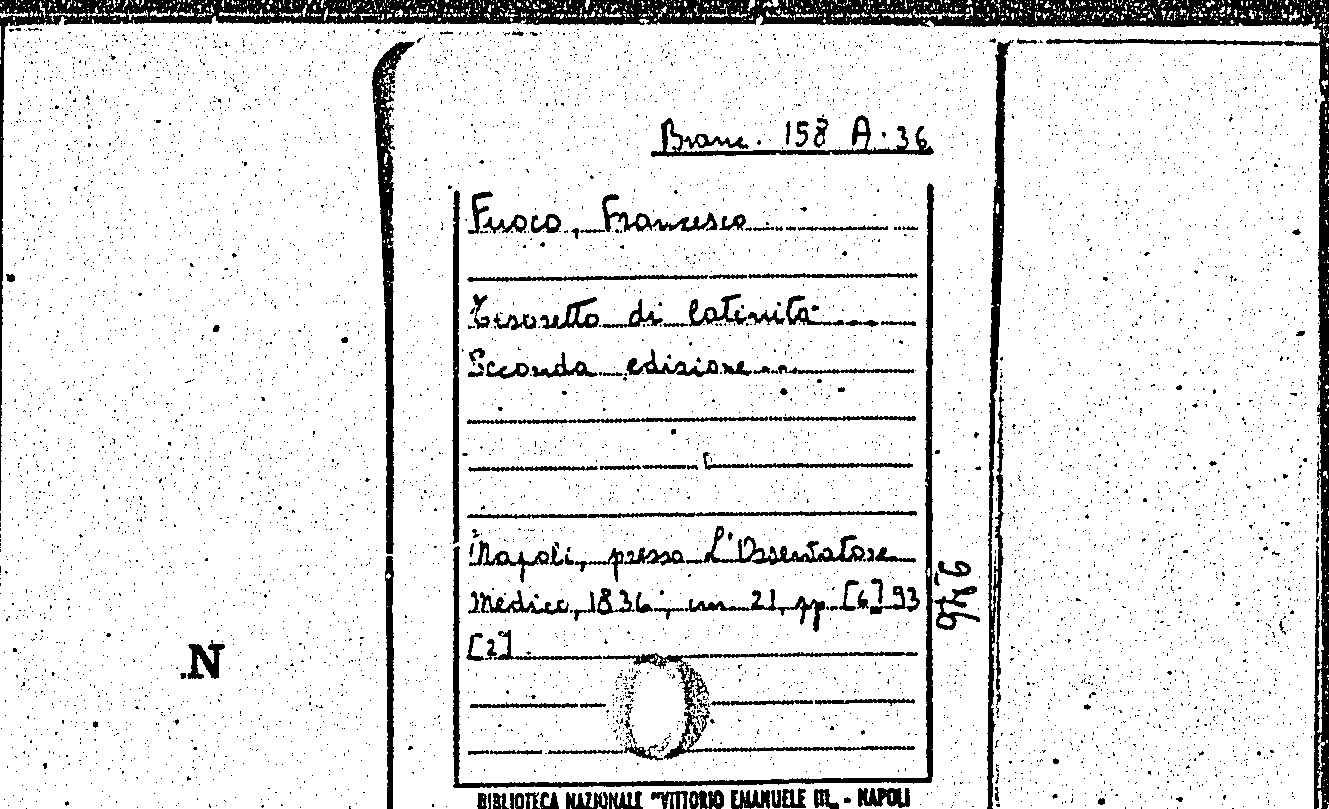 Branc. 158 A. 36
Fuoco, Francesco
Tesoretto di latinità
Seconda edizione
Napoli, presso L'Osservatore
Medico, 1836; cm 21, pp. [6] 93
[2].
N
BIBLIOTECA NAZIONALE "VITTORIO EMANUELE III„ - NAPOLI